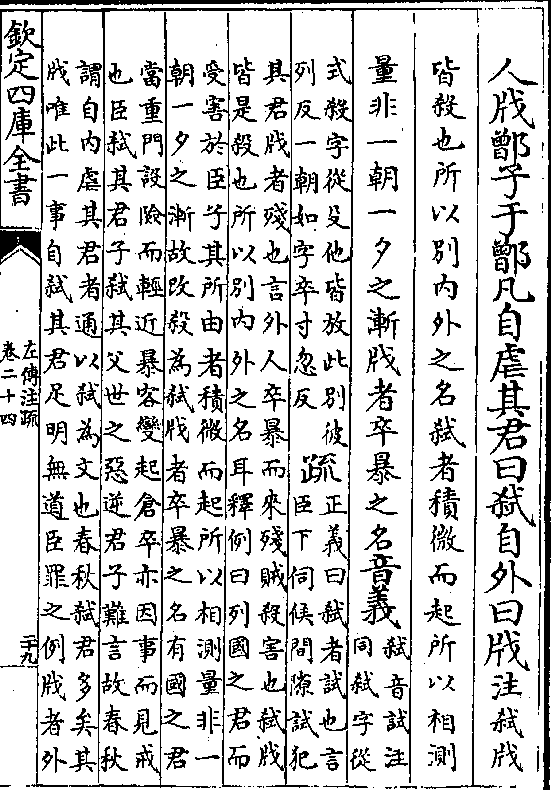 人戕鄫子于鄫凡自虐其君曰弑自外曰戕注弑戕
皆殺也所以別内外之名弑者積微而起所以相測
量非一朝一夕之漸戕者卒暴之名音義弑音試注
同弑字從
式殺字從殳他皆放此別彼
列反一朝如字卒寸忽反
疏正義曰弑者試也言
臣下伺候間隙試犯
其君戕者殘也言外人卒暴而來殘賊殺害也弑戕
皆是殺也所以別内外之名耳釋例曰列國之君而
受害於臣子其所由者積微而起所以相測量非一
朝一夕之漸故改殺為弑戕者卒暴之名有國之君
當重門設險而輕近暴客變起倉卒亦因事而見戒
也臣弑其君子弑其父世之惡逆君子難言故春秋
謂自内虐其君者通以弑為文也春秋弑君多矣其
戕唯此一事自弑其君足明無道臣罪之例戕者外
欽定四庫全書
左傳注疏
卷二十四
二十九